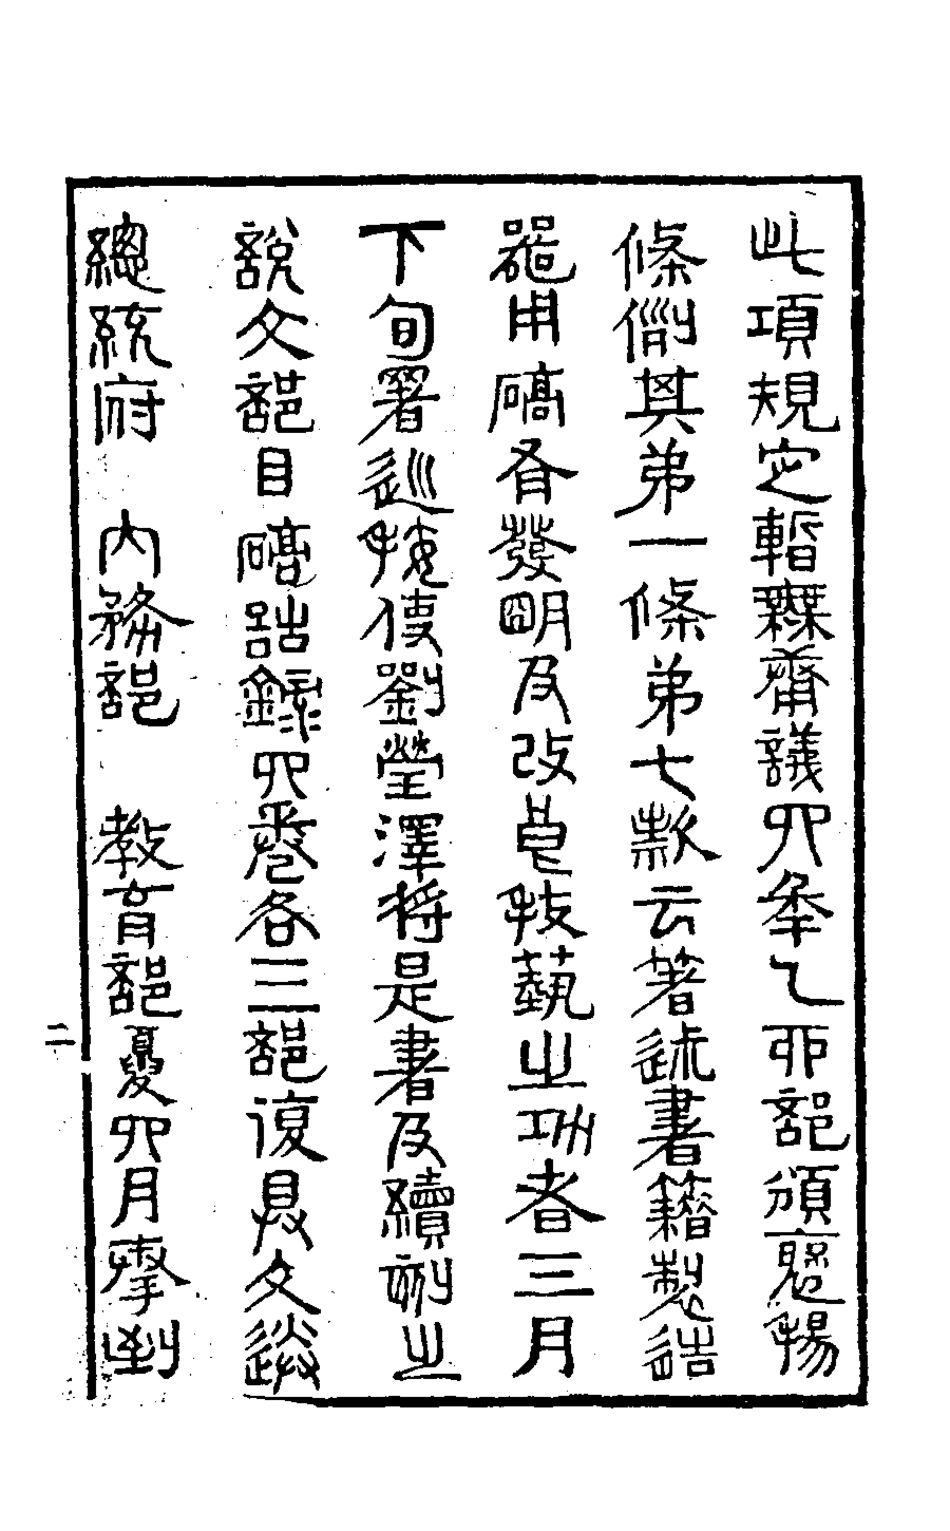 此項規定暫無庸議四年乙卯部頒褒揚
條例其弟一條弟七款云著述書籍製造
器用確有發明及改良技藝之功者三月
下旬署巡按使劉瑩澤將是書及續刻之
說文部目確詁錄四卷各三部復具文送
總統府　內務部　教育部夏四月奉到
二